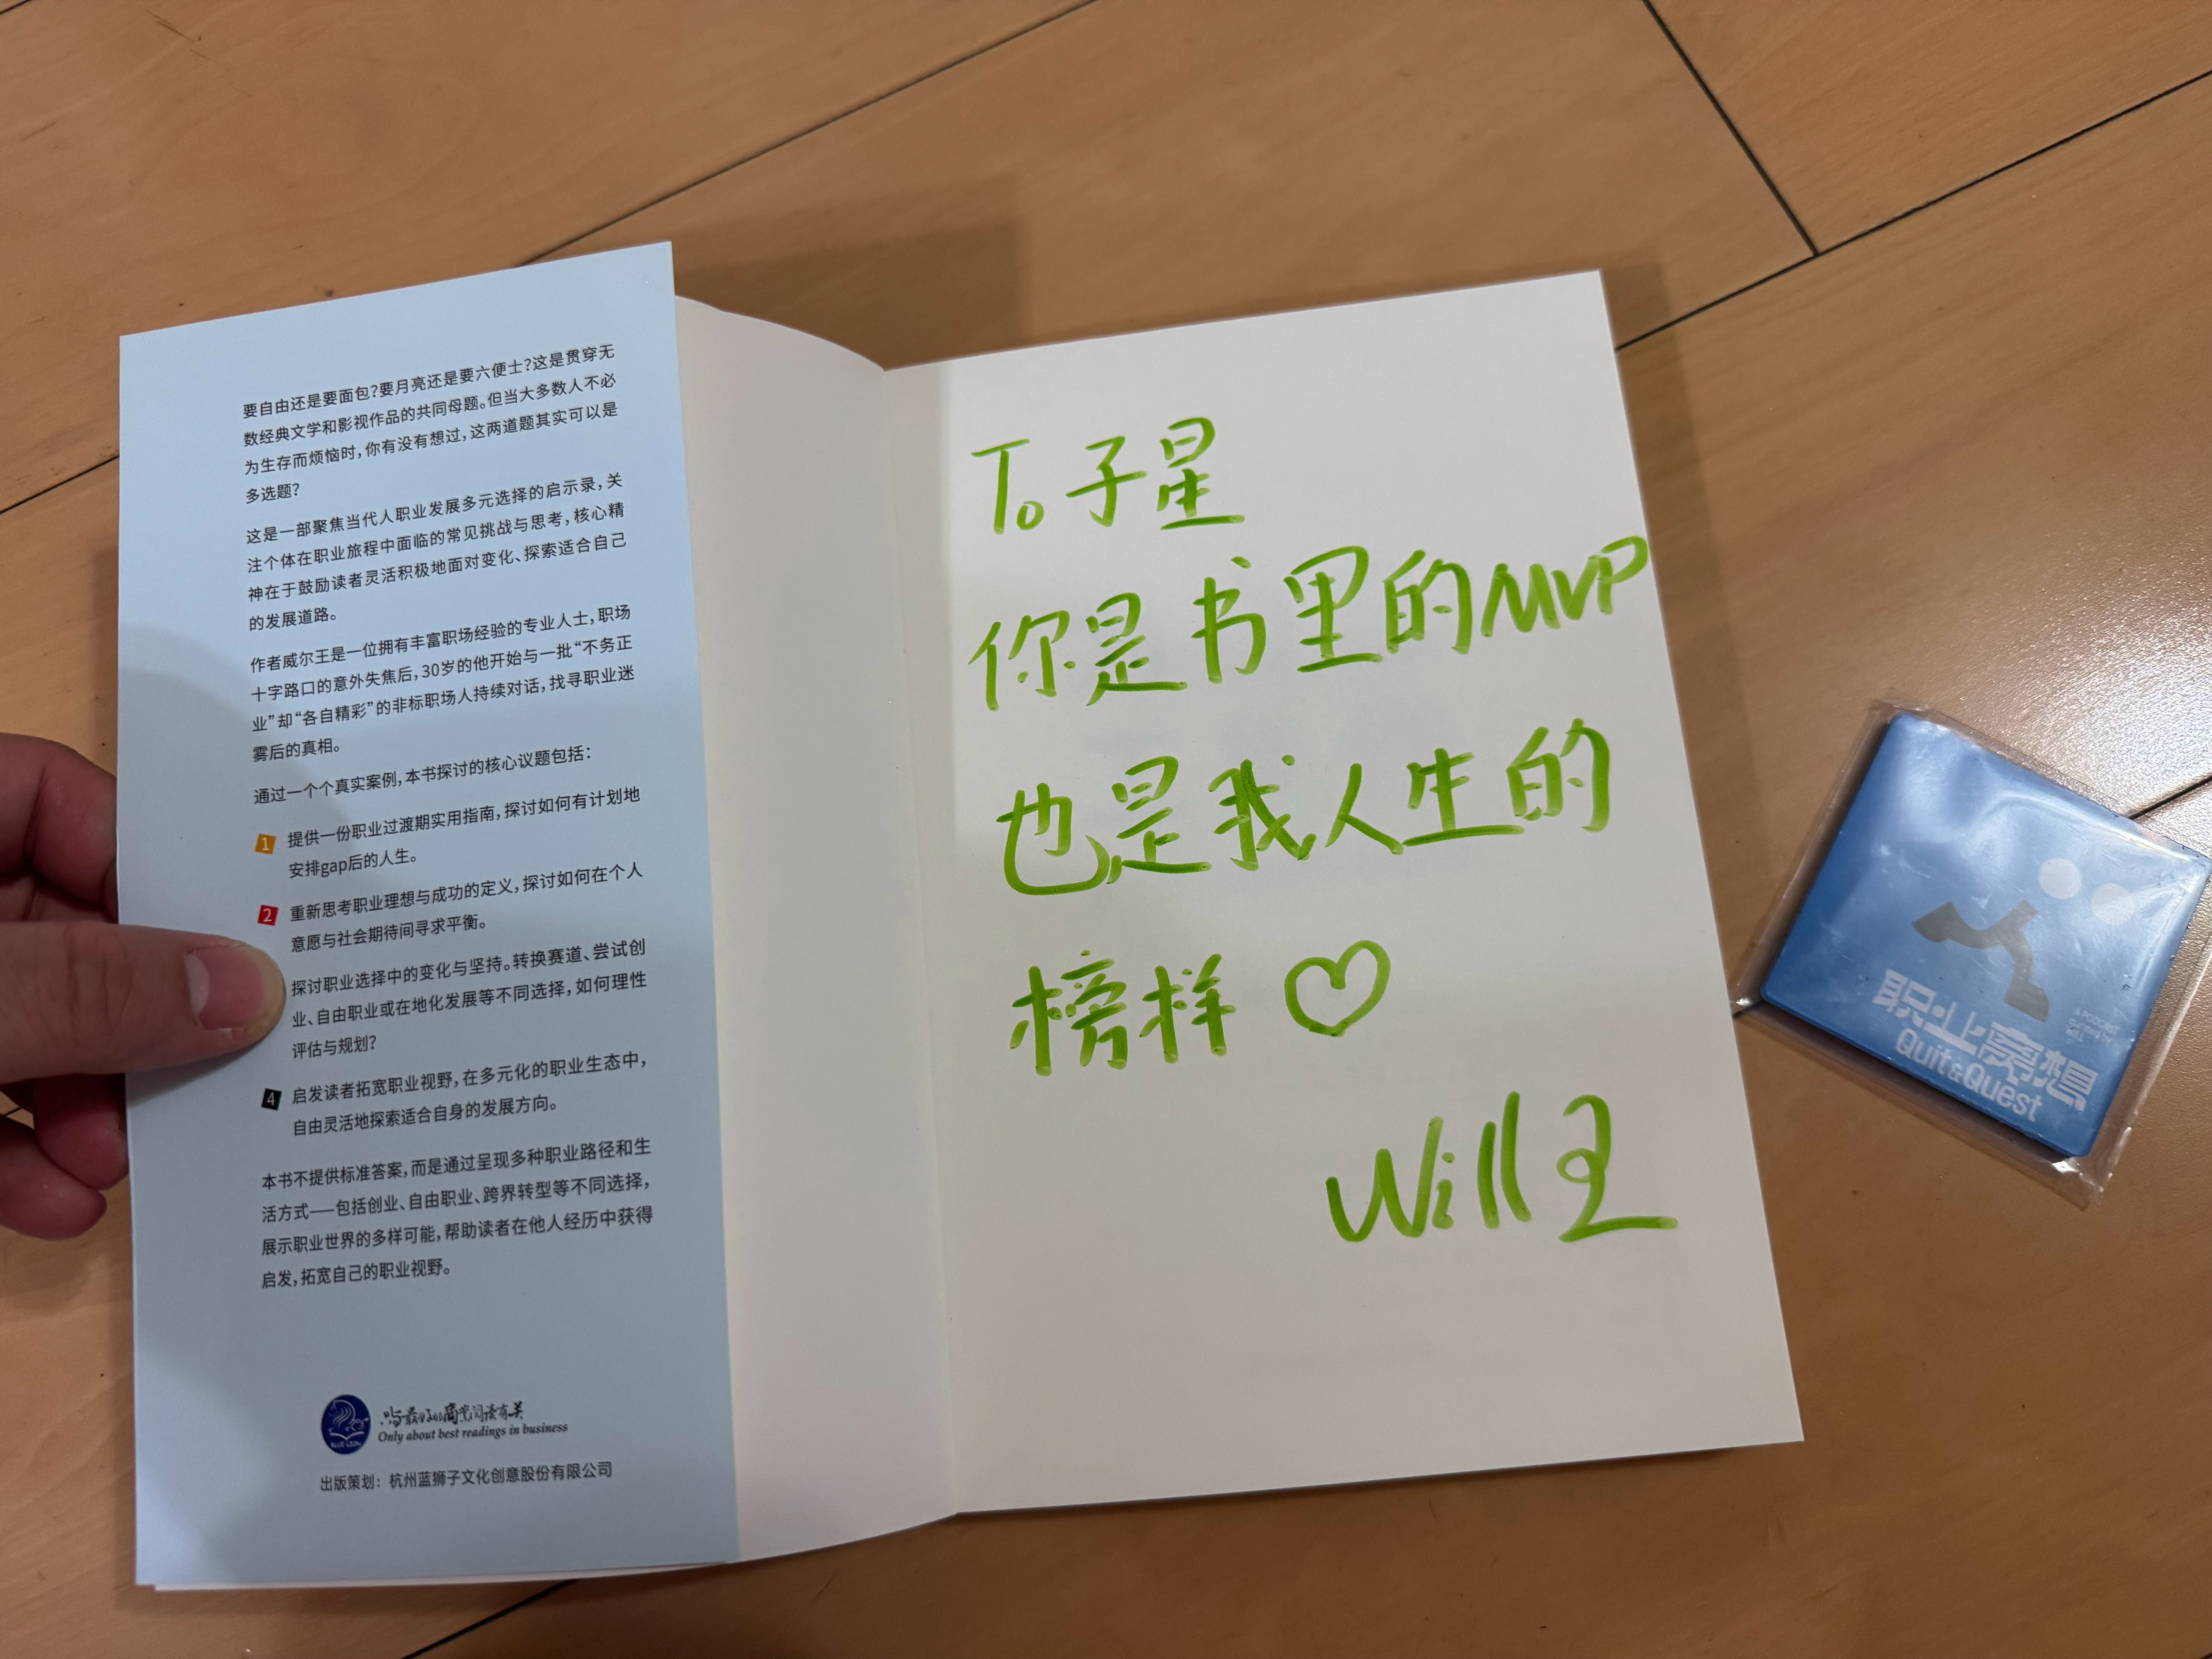 要自由还是要面包？要月亮还是要六便士？这是贯穿无
数经典文学和影视作品的共同母题。但当大多数人不必
为生存而烦恼时，你有没有想过，这两道题其实可以是
多选题？
这是一部聚焦当代人职业发展多元选择的启示录，关
注个体在职业旅程中面临的常见挑战与思考，核心精
神在于鼓励读者灵活积极地面对变化、探索适合自己
的发展道路。
作者威尔王是一位拥有丰富职场经验的专业人士，职场
十字路口的意外失焦后，30岁的他开始与一批“不务正
业”却“各自精彩”的非标职场人持续对话，找寻职业迷
雾后的真相。
通过一个个真实案例，本书探讨的核心议题包括：
1 提供一份职业过渡期实用指南，探讨如何有计划地
安排gap后的人生。
2 重新思考职业理想与成功的定义，探讨如何在个人
意愿与社会期待间寻求平衡。
探讨职业选择中的变化与坚持。转换赛道、尝试创
业、自由职业或在地化发展等不同选择，如何理性
评估与规划？
4 启发读者拓宽职业视野，在多元化的职业生态中，
自由灵活地探索适合自身的发展方向。
本书不提供标准答案，而是通过呈现多种职业路径和生
活方式——包括创业、自由职业、跨界转型等不同选择，
展示职业世界的多样可能，帮助读者在他人经历中获得
启发，拓宽自己的职业视野。
BLUE LION
只与最好的商业阅读有关
Only about best readings in business
出版策划：杭州蓝狮子文化创意股份有限公司
To 子星
你是书里的MVP
也是我人生的
榜样
Will王
职业离想
Quit&Quest
A PODCAST